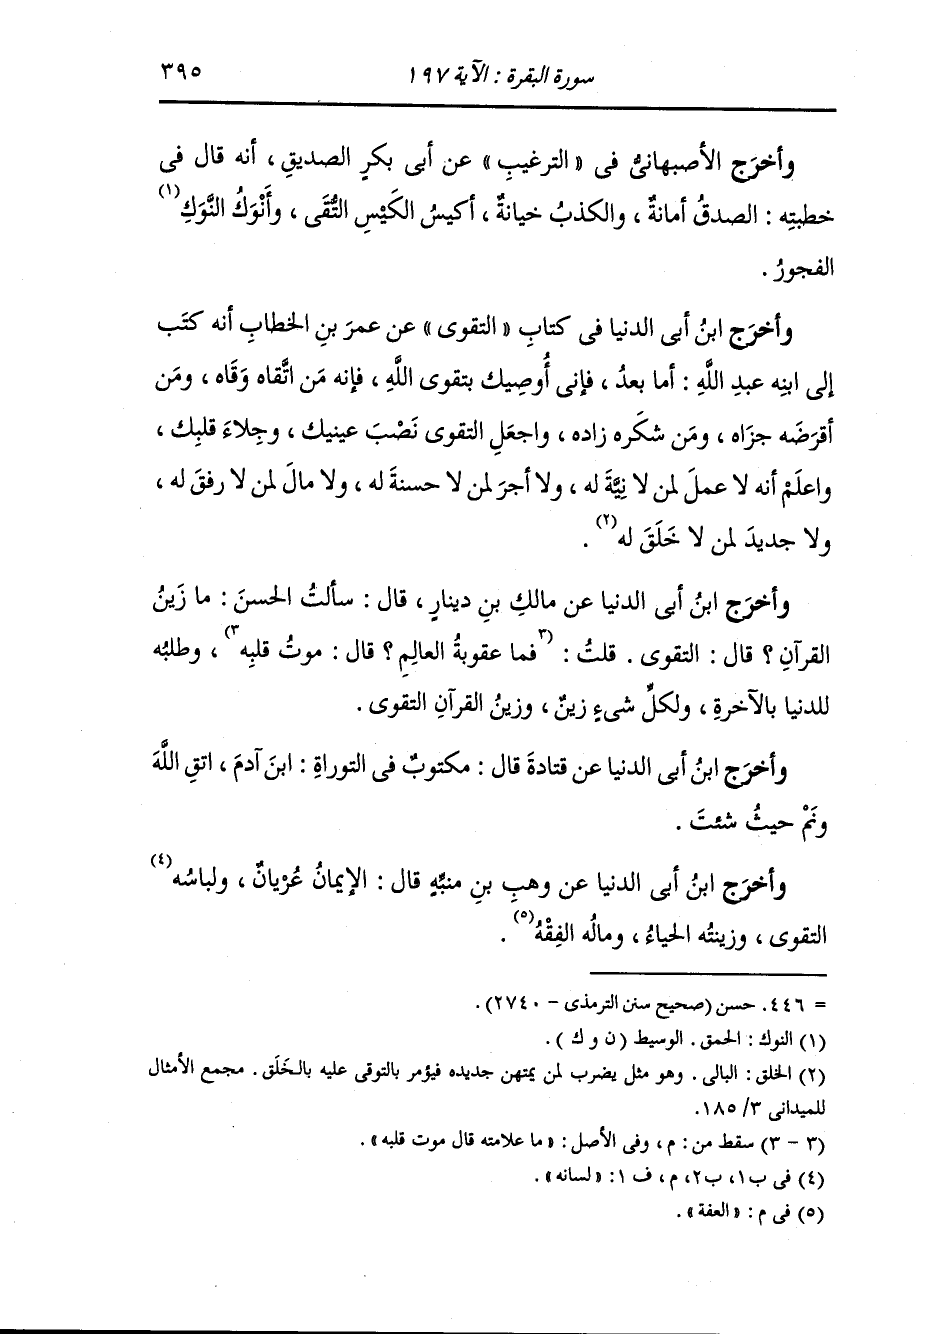 سورة البقرة : الآية ١٩٧ ٣٩٥
وأخرَج الأصبهانىُّ فى « الترغيبِ » عن أبى بكرٍ الصديقِ ، أنه قال فى
خطبتِه : الصدقُ أمانةٌ ، والكذبُ خيانةٌ ، أكيسُ الكَيْسِ التُّقَى ، وأَنْوَكُ النَّوَكِ(١)
الفجورُ .
وأخرَج ابنُ أبى الدنيا فى كتابِ « التقوى » عن عمرَ بنِ الخطابِ أنه كتَب
إلى ابنِه عبدِ اللَّهِ : أما بعدُ ، فإنى أُوصِيك بتقوى اللَّهِ ، فإنه مَن اتَّقاه وَقَاه ، ومَن
أقرَضَه جزَاه ، ومَن شكَره زاده ، واجعَلِ التقوى نَصْبَ عينيك ، وجِلاءَ قلبِك ،
واعلَمْ أنه لا عملَ لمن لا نِيَّةَ له ، ولا أجرَ لمن لا حسنةَ له ، ولا مالَ لمن لا رفقَ له ،
ولا جديدَ لمن لا خَلَقَ له(٢) .
وأخرَج ابنُ أبى الدنيا عن مالكِ بنِ دينارٍ ، قال : سألتُ الحسنَ : ما زَينُ
القرآنِ ؟ قال : التقوى . قلتُ : (٣فما عقوبةُ العالِمِ ؟ قال : موتُ قلبِه٣) ، وطلبُه
للدنيا بالآخرةِ ، ولكلِّ شىءٍ زينٌ ، وزينُ القرآنِ التقوى .
وأخرَج ابنُ أبى الدنيا عن قتادةَ قال : مكتوبٌ فى التوراةِ : ابنَ آدمَ ، اتقِ اللَّهَ
ونَمْ حيثُ شئتَ .
وأخرَج ابنُ أبى الدنيا عن وهبِ بنِ منبِّهٍ قال : الإيمانُ عُرْيانٌ ، ولباسُه(٤)
التقوى ، وزينتُه الحياءُ ، ومالُه الفِقْهُ(٥) .
= ٤٤٦. حسن (صحيح سنن الترمذى – ٢٧٤٠) .
(١) النوك : الحمق . الوسيط (ن و ك ) .
(٢) الخلق : البالى . وهو مثل يضرب لمن يمتهن جديده فيؤمر بالتوقى عليه بالخَلَق . مجمع الأمثال
للميدانى ٣/ ١٨٥.
(٣ – ٣) سقط من : م ، وفى الأصل : « ما علامته قال موت قلبه » .
(٤) فى ب١، ب٢، م، ف ١: « لسانه » .
(٥) فى م : « العفة » .